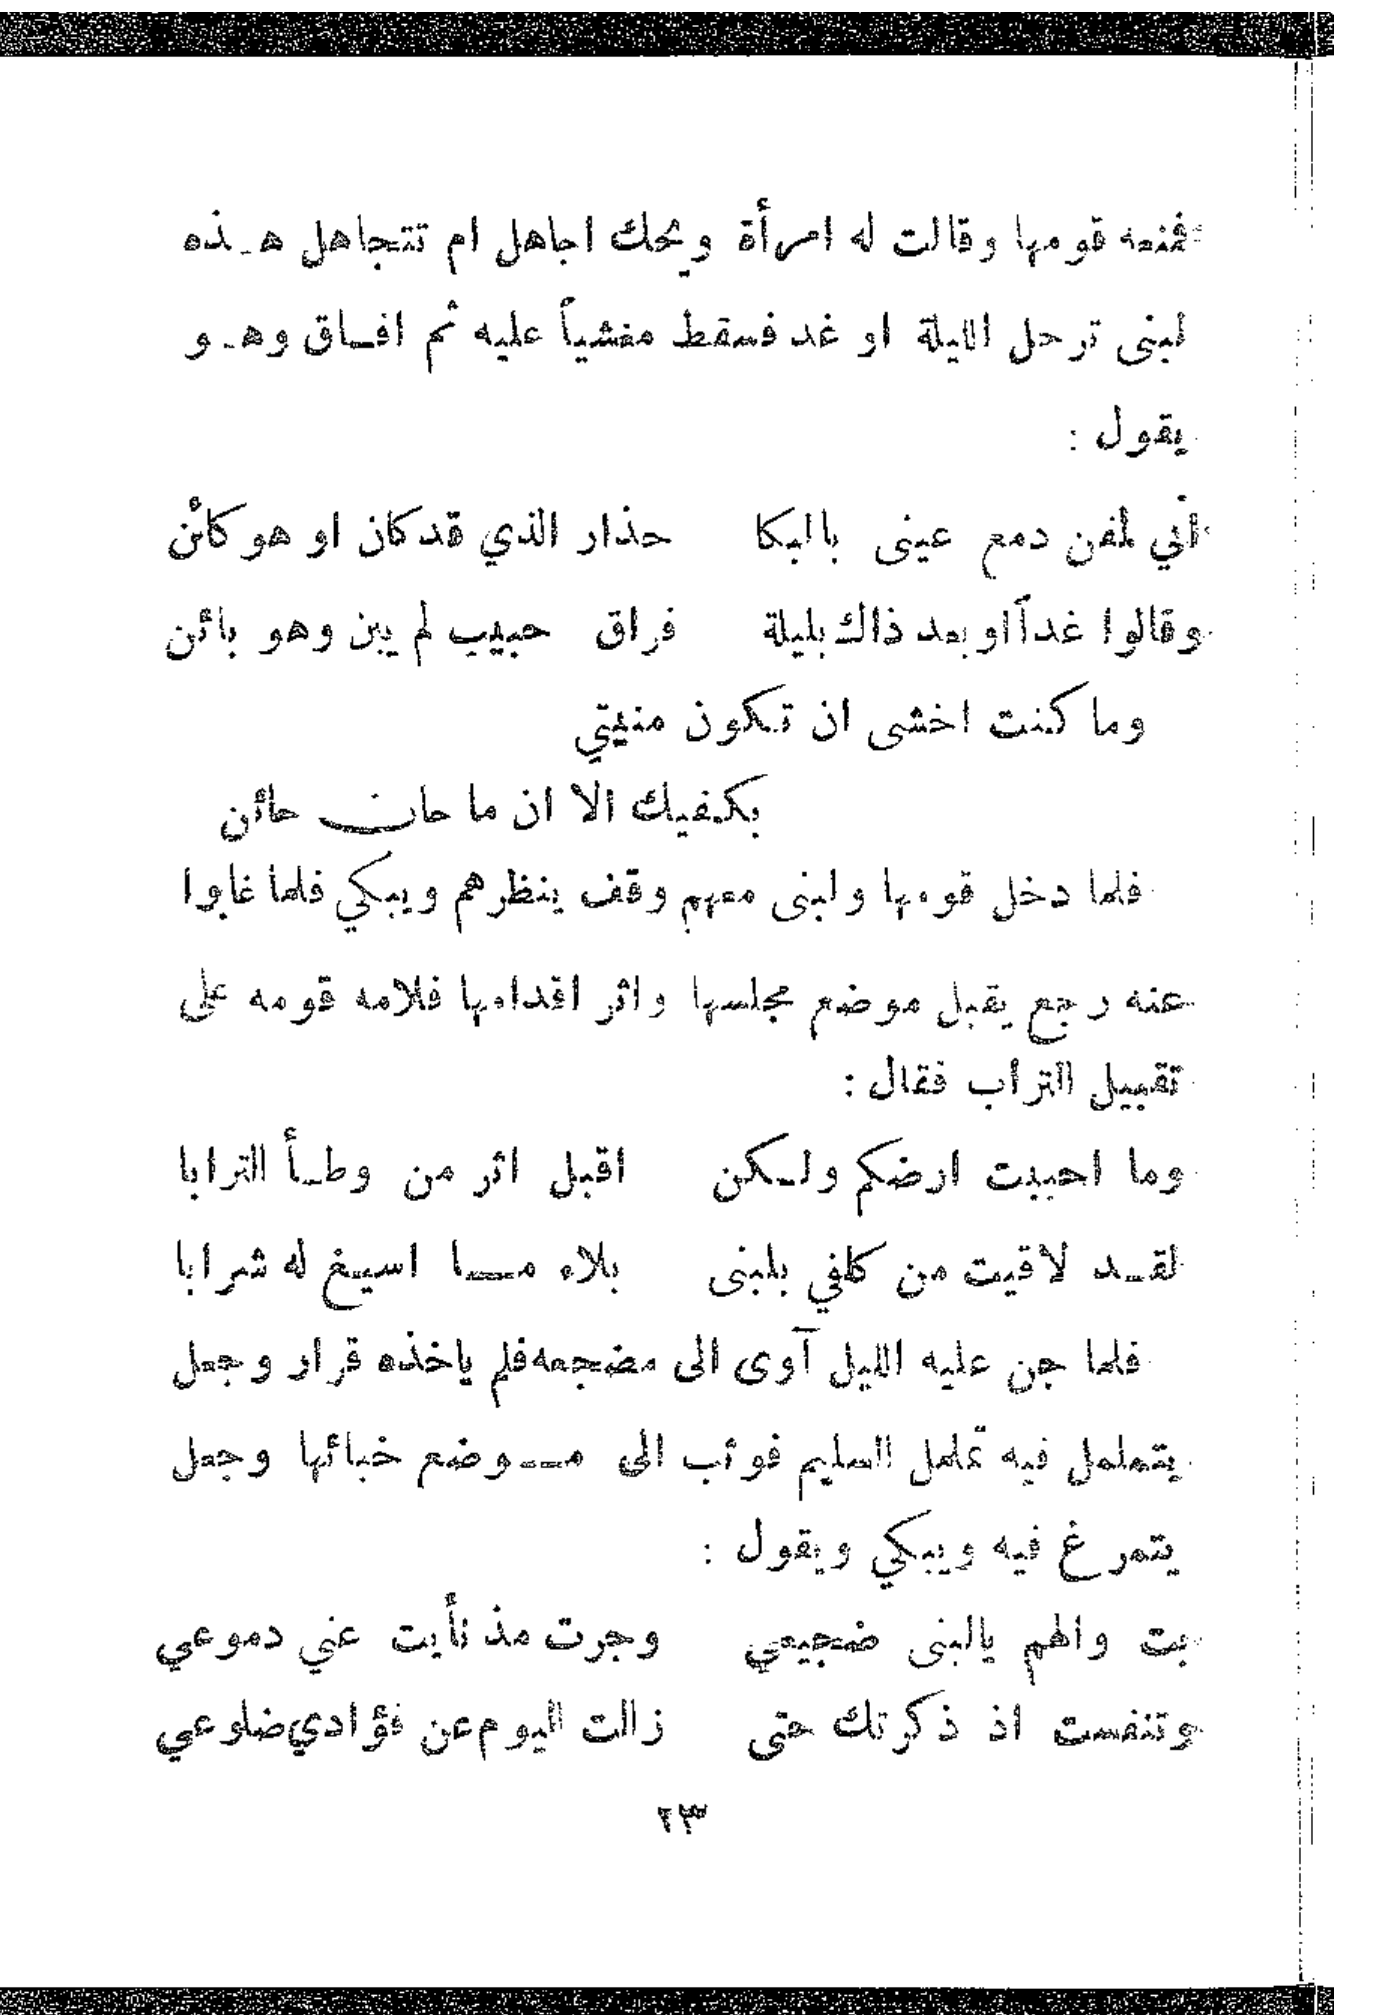 فمنعه قومها وقالت له امرأة ويحك اجاهل ام تتجاهل هـذه
لبنى ترحل الليلة او غد فسقط مغشياً عليه ثم افـاق وهـو
يقول :
أني لمفن دمع عينى بالبكا    حذار الذي قد كان او هو كائن
وقالوا غداً او بعد ذاك بليلة    فراق حبيب لم يبن وهو بائن
وما كنت اخشى ان تكون منيتي
بكفيك الا ان ما حان حائن
فلما دخل قومها ولبنى معهم وقف ينظرهم ويبكي فلما غابوا
عنه رجع يقبل موضع مجلسها واثر اقدامها فلامه قومه على
تقبيل التراب فقال :
وما احببت ارضكم ولـكن    اقبل اثر من وطـأ الترابا
لقـد لاقيت من كلفي بلبنى    بلاء مـا اسيـغ له شرابا
فلما جن عليه الليل آوى الى مضجعه فلم ياخذه قرار وجعل
يتململ فيه تململ السليم فوثب الى مـوضع خبائها وجعل
يتمرغ فيه ويبكي ويقول :
بت والهم يالبنى ضجيعي    وجرت مذ نأيت عني دموعي
وتنفست اذ ذكرتك حتى    زالت اليوم عن فؤادي ضلوعي
٢٣